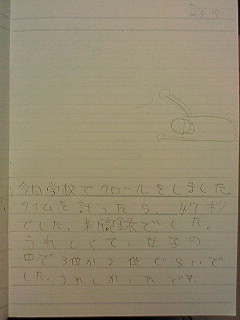 今日学校でクロールをしました。
タイムを計ったら、47秒
でした。新記録でした。
うれしくて、女子の
中で3位か2位ぐらいで
した。うれしかったです。